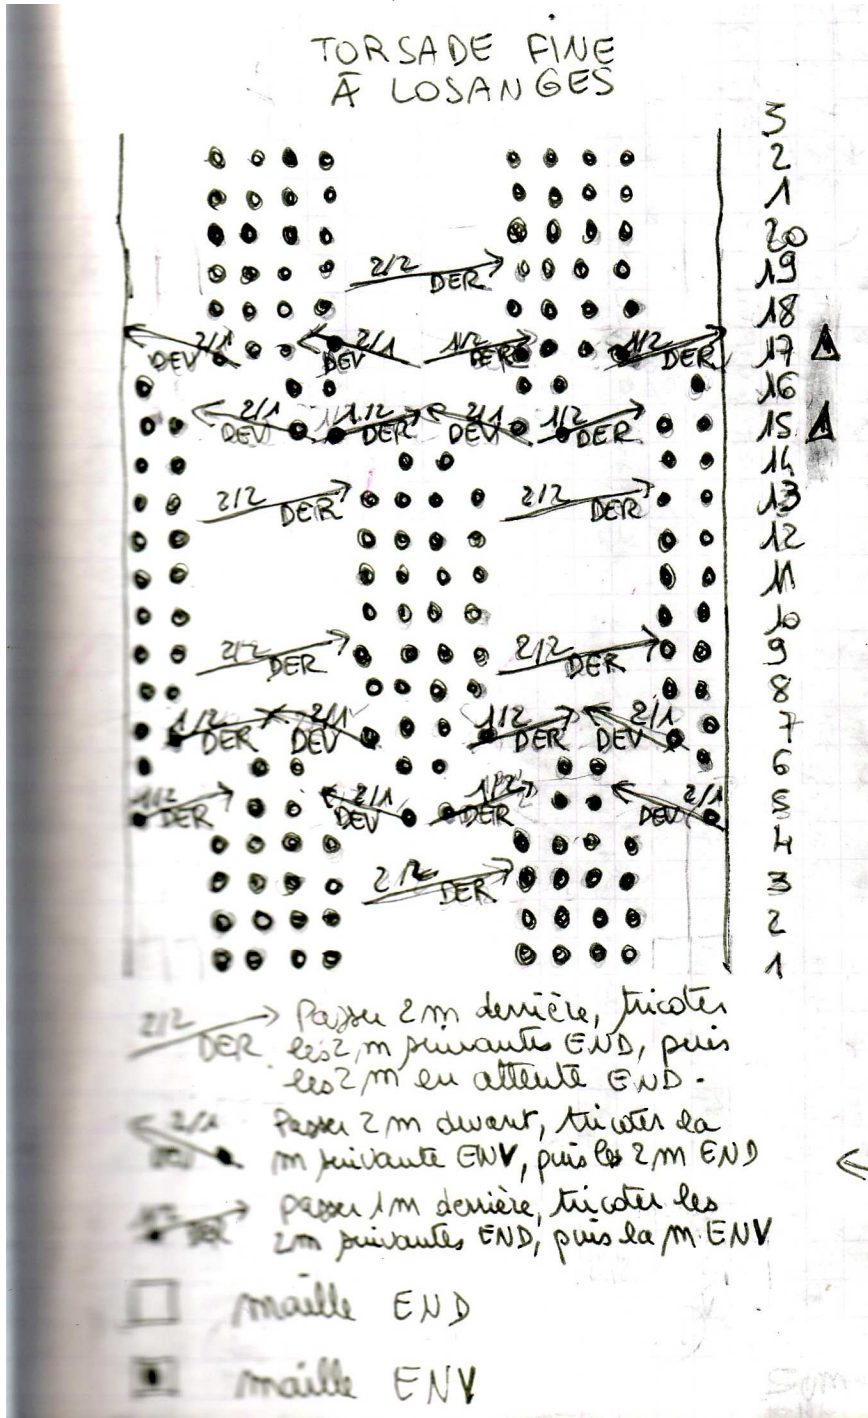 TORSADE FINE
À LOSANGES
3
2
1
20
2/2 DER 19
18
2/1 DEV 2/1 DEV 1/2 DER 1/2 DER 17
16
2/1 DEV 1/2 DER 2/1 DEV 1/2 DER 15
14
2/2 DER 2/2 DER 13
12
11
10
2/2 DER 2/2 DER 9
8
1/2 DER 2/1 DEV 1/2 DER 2/1 DEV 7
6
1/2 DER 2/1 DEV 1/2 DER 2/1 DEV 5
4
2/2 DER 3
2
1
2/2 DER Passer 2 m derrière, tricoter
les 2 m suivantes END, puis
les 2 m en attente END.
2/1 DEV Passer 2 m devant, tricoter la
m suivante ENV, puis les 2 m END
1/2 DER passer 1 m derrière, tricoter les
2m suivantes END, puis la m ENV
maille END
maille ENV